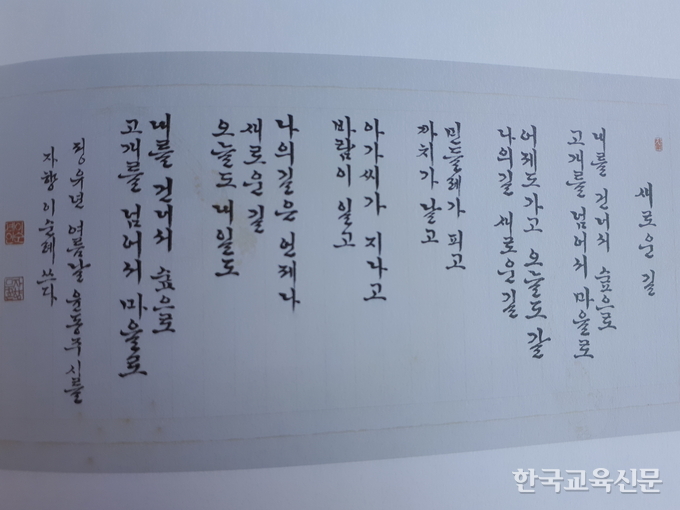 새로운 길
내를 건너서 숲으로
고개를 넘어서 마을로
어제도 가고 오늘도 갈
나의 길 새로운 길
민들레가 피고
까치가 날고
아가씨가 지나고
바람이 일고
나의 길은 언제나
새로운 길
오늘도 내일도
내를 건너서 숲으로
고개를 넘어서 마을로
정유년 여름날 윤동주 시를
자향 이순례 쓰다
한국교육신문